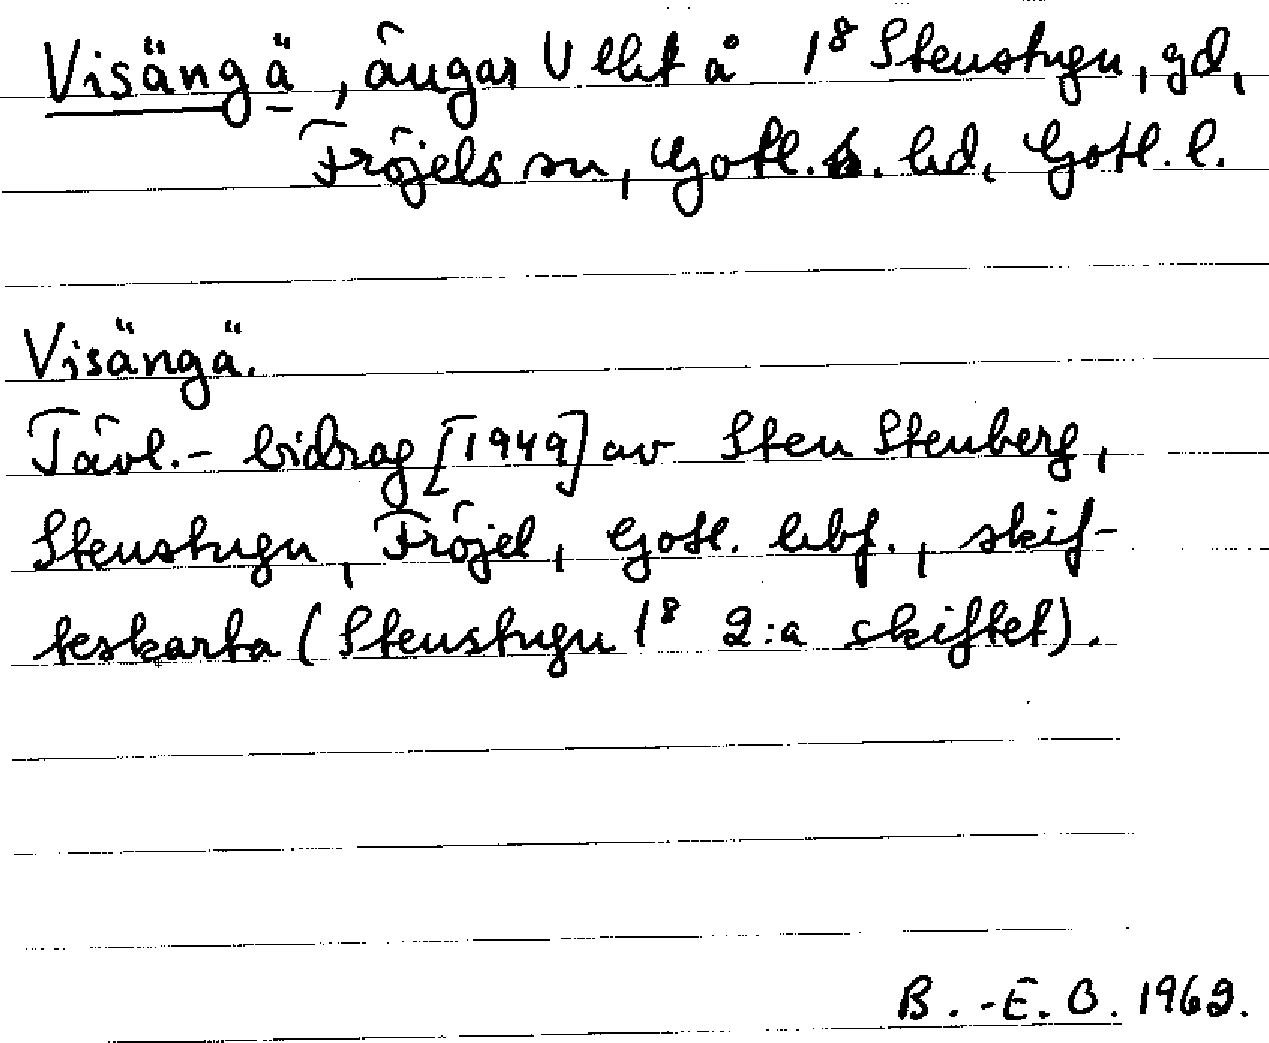 Visängä, ängar Utlift å 1⁸ Stenstugu, gd,
Fröjels sn, Gotl. s. hd, Gotl. l.
Visängä.
Tävl.- bidrag [1949] av Sten Stenberg,
Stenstugu, Fröjel, Gotl. hbf., skif-
teskarta (Stenstugu 1⁸ 2:a skiftet).
B.-E. O. 1962.